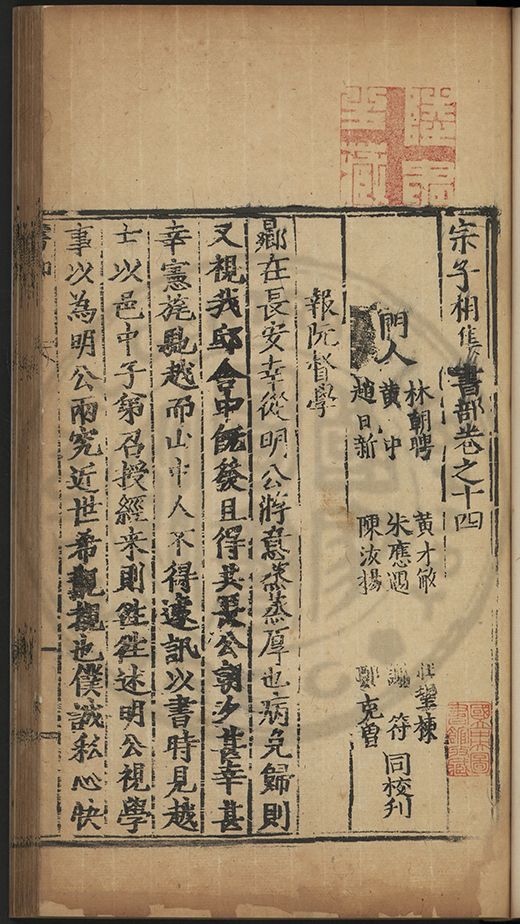 宗子相集書部卷之十四
門人
林朝聘 黄才敏 望棟
黄中 朱應遇 謝符 同校刋
趙日新 陳汝揚 鄭克曽
報阮督學
曏在長安幸從明公將意蒸蒸厚也病免歸則
又視我邸舍中既發且得 公 甚幸甚
幸憲旄馳越而山中人不得遽訊以書時見越
士以邑中子第召授經来則徃徃述明公視學
事以為明公兩究近世希覯 也僕誠私心快
國立北平圖書館收藏